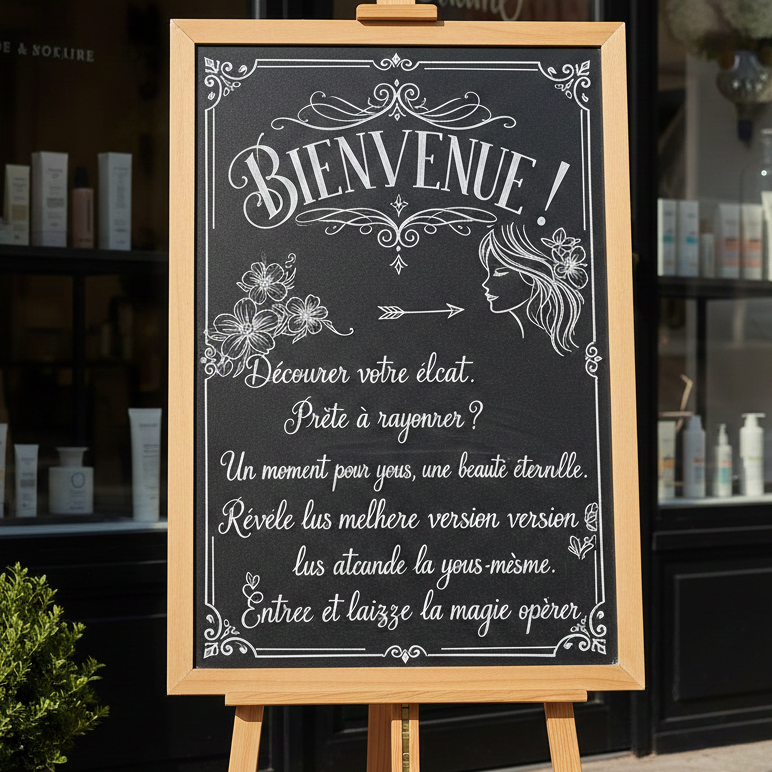 BIENVENUE!
Décourer votre élcat.
Prète à rayonrer?
Un moment pour yous, une beautè éternlle.
Révéle lus melhere version version
lus atcande la yous-mèsme.
Entree et laizze la magie opèrer.